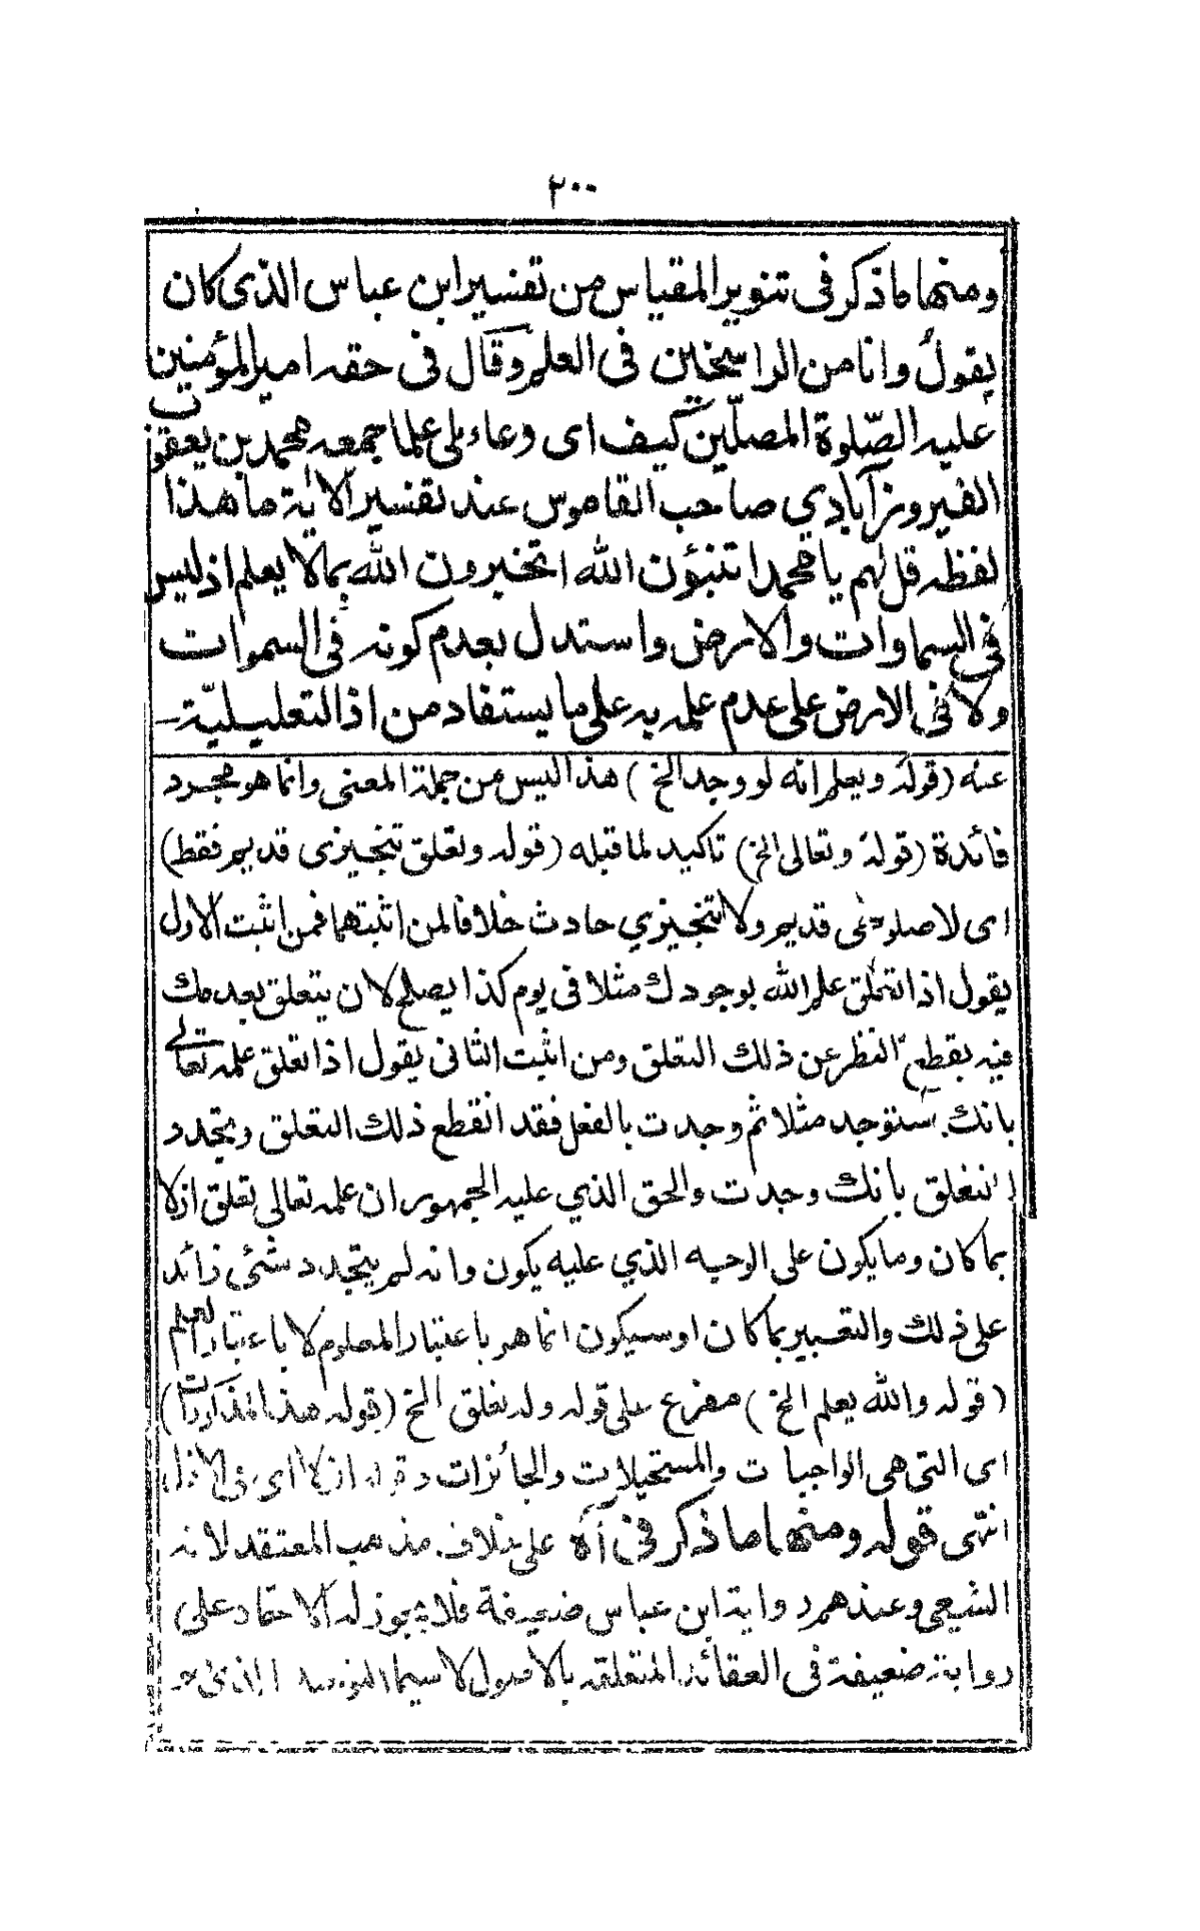 ٢٠٠
ومنها ما ذكر فى تنوير المقياس من تفسير ابن عباس الذى كان
يقول وانا من الراسخين فى العلم وقال فى حقه امير المؤمنين
عليه الصّلوة المصلّين كيف اى وعاء ملى علما جمعه محمد بن يعقوب
الفيروزآبادي صاحب القاموس عند تفسير الاٰية ما هذا
لفظه قل لهم يا محمد اتنبؤن الله اتخبرون الله بما لا يعلم اذ ليس
فى السماوات والارض واستدل بعدم كونه فى السموات
ولا فى الارض على عدم علمه به على ما يستفاد من اذ التعليليّة
عنه (قوله ويعلم انه لو وجد الخ) هذا ليس من جملة المعنى وانما هو مجرد
فائدة (قوله وتعالى الخ) تاكيد لما قبله (قوله وتعلق تنجيزى قديم فقط)
اى لا صلوحى قديم ولا تنجيزي حادث خلافا لمن اثبتهما فمن اثبت الاول
يقول اذا تعلق علم الله بوجودك مثلا فى يوم كذا يصلح لان يتعلق بعدمك
فيه بقطع النظر عن ذلك التعلق ومن اثبت الثانى يقول اذا تعلق علمه تعالى
بانك ستوجد مثلا ثم وجدت بالفعل فقد انقطع ذلك التعلق ويتجدد
التعلق بانك وجدت والحق الذي عليه الجمهور ان علمه تعالى تعلق ازلا
بما كان وما يكون على الوجه الذي عليه يكون وانه لم يتجدد شئى زائد
على ذلك والتعبير بما كان او سيكون انما هو باعتبار المعلوم لا باعتبار العلم
(قوله والله يعلم الخ) مفرع على قوله وله تعلق الخ (قوله هذا المذكورات)
اى التى هى الواجبات والمستحيلات والجائزات وقوله ازلا اى فى الازل
انتهى قوله ومنها ما ذكر فى آه على خلاف مذهب المعتقد لانه
الشيعى وعندهم رواية ابن عباس ضعيفة فلا يجوز له الاعتماد على
رواية ضعيفة فى العقائد المتعلقه بالاصول لا سيما